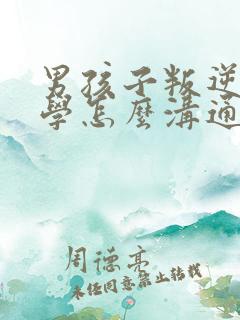 男孩子叛逆
學怎麼溝通
周德亮
未经同意禁止转载